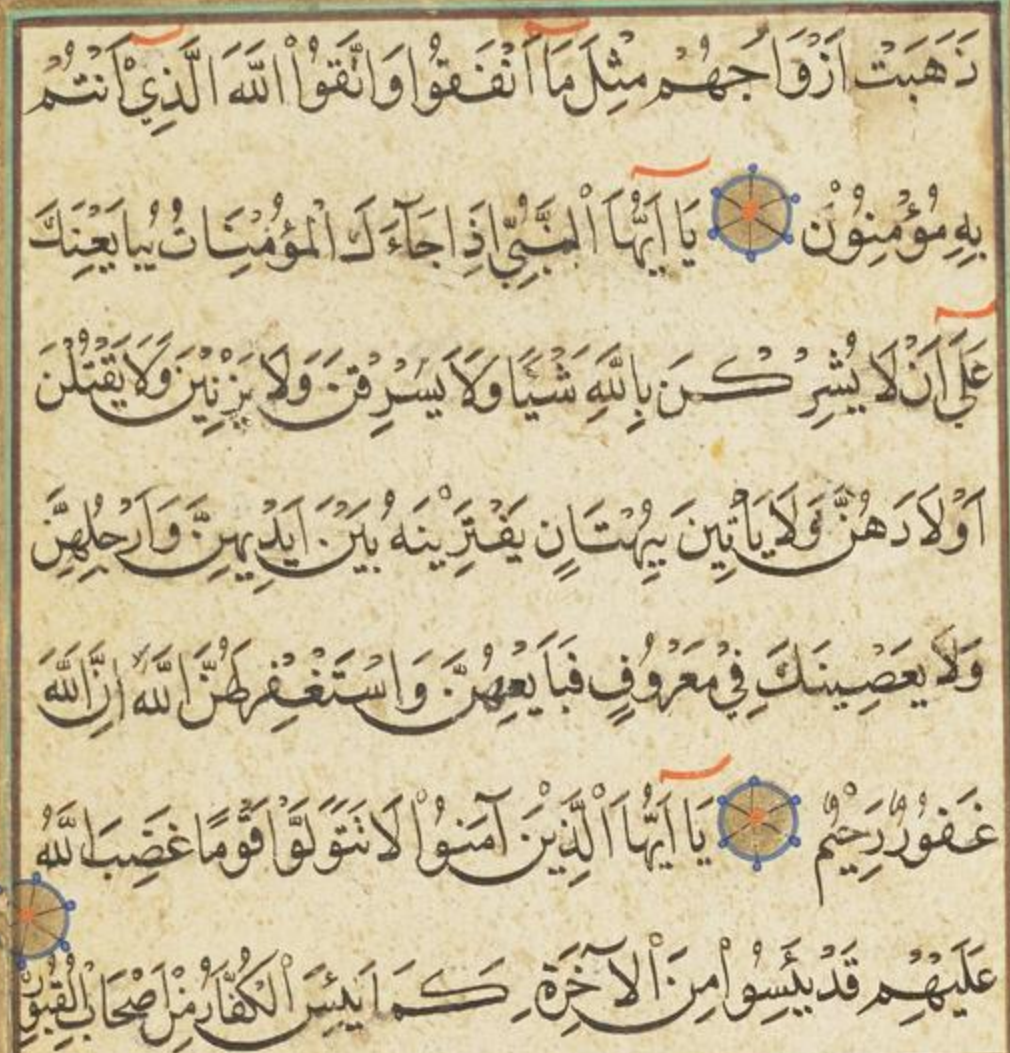 ذَهَبَتْ اَزْوَاجُهُمْ مِثْلَ مَا اَنْفَقُوا وَاتَّقُوا اللّٰهَ الَّذِيْ اَنْتُمْ
بِهِ مُؤْمِنُوْنَ يَا اَيُّهَا النَّبِيُّ اِذَا جَآءَكَ الْمُؤْمِنَاتُ يُبَايِعْنَكَ
عَلَى اَنْ لَا يُشْرِكْنَ بِاللّٰهِ شَيْـًٔا وَلَا يَسْرِقْنَ وَلَا يَزْنِيْنَ وَلَا يَقْتُلْنَ
اَوْلَادَهُنَّ وَلَا يَأْتِيْنَ بِبُهْتَانٍ يَفْتَرِيْنَهُ بَيْنَ اَيْدِيْهِنَّ وَاَرْجُلِهِنَّ
وَلَا يَعْصِيْنَكَ فِيْ مَعْرُوْفٍ فَبَايِعْهُنَّ وَاسْتَغْفِرْ لَهُنَّ اللّٰهَ اِنَّ اللّٰهَ
غَفُوْرٌ رَحِيْمٌ يَا اَيُّهَا الَّذِيْنَ آمَنُوْا لَا تَتَوَلَّوْا قَوْمًا غَضِبَ اللّٰهُ
عَلَيْهِمْ قَدْ يَئِسُوْا مِنَ الْآخِرَةِ كَمَا يَئِسَ الْكُفَّارُ مِنْ اَصْحَابِ الْقُبُوْرِ